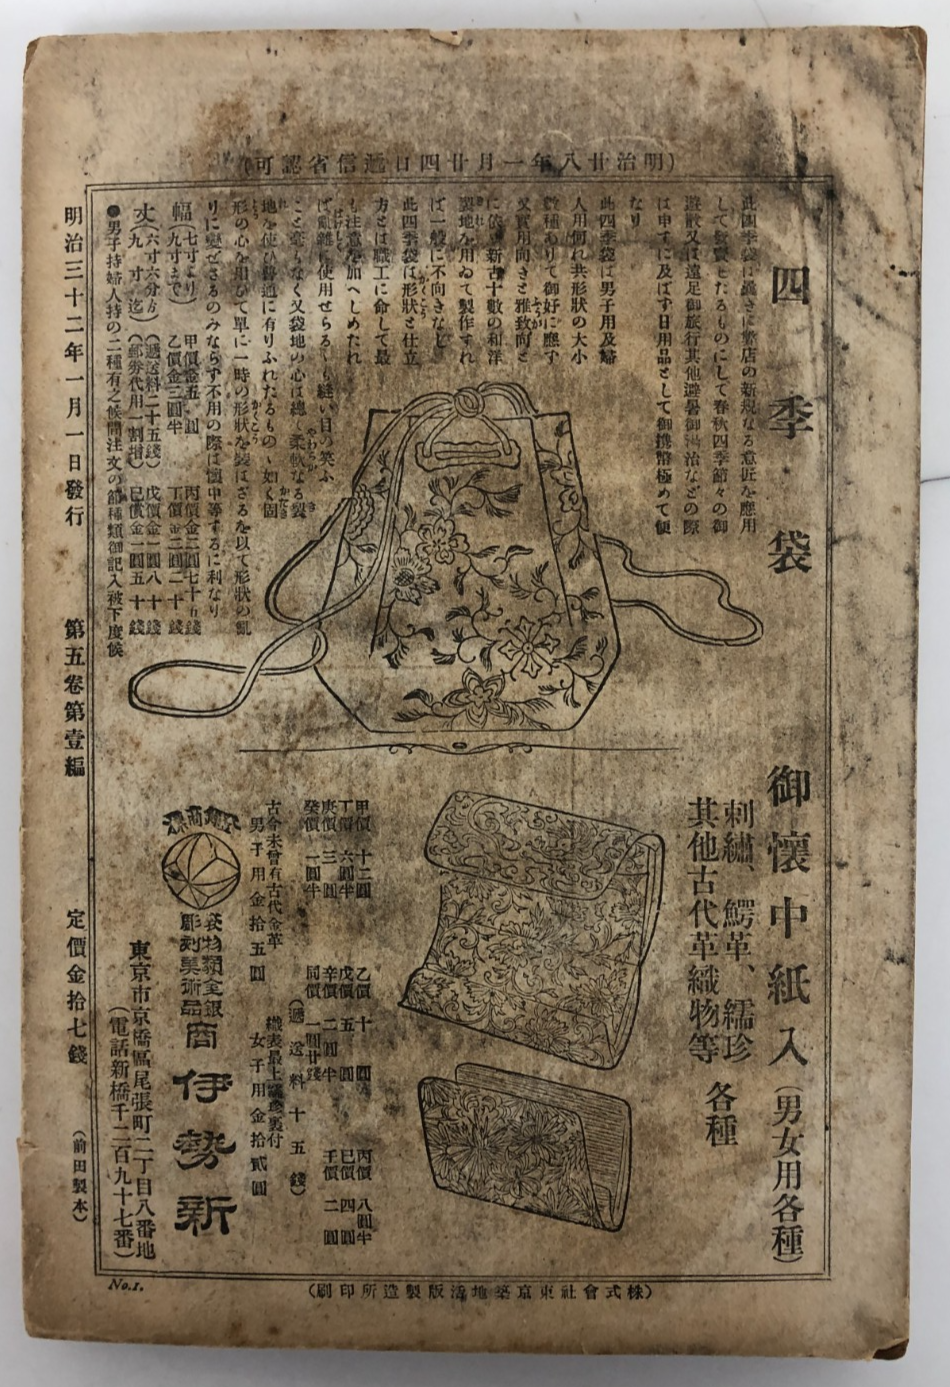 (明治廿八年一月廿四日逓信省認可)
四季袋
此四季袋は曩きに弊店の新規なる意匠を應用
して發賣したるものにして春秋四季節々の御
遊散又は遠足御旅行其他避暑御湯治などの際
は申すに及ばす日用品として御携帶極めて便
なり
此四季袋は男子用及婦
人用何れ共形狀の大小
數種ありて御好に應す
又實用向きと雅致向と
に依り新古十數の和洋
裂地を用ゐて製作すれ
ば一般に不向きなし
此四季袋は形狀と仕立
方とは職工に命して最
も注意を加へしめたれ
ば亂雜に使用せらるゝも縫い目の笑ふ
こと等もなく又袋地の心は總て柔軟なる製
地を使ひ普通に有りふれたるものゝ如く固
形の心を用ひて單に一時の形狀を裝はざるを以て形狀の亂
りに變せさるのみならす不用の際は懷中等するに利なり
幅(七寸より九寸まで) 甲價金五圓 丙價金二圓七十五錢
乙價金三圓半 丁價金二圓二十錢
丈(六寸六分より九寸迄) (遞送料二十五錢) 戊價金一圓八十錢
(郵劵代用一割增) 己價金一圓五十錢
●男子持婦人持の二種有之候間注文の節種類御記入被下度候
御懷中紙入(男女用各種)
刺繡、鰐革、繻珍
其他古代革織物等 各種
甲價 十二圓 乙價 十圓 丙價 八圓半
丁價 六圓半 戊價 五圓 己價 四圓
庚價 三圓 辛價 二圓半 壬價 二圓
癸價 一圓半 同價 一圓廿錢
(遞送料十五錢)
古今未曾有古代金革 織表最上 裏付
男子用金拾五圓 女子用金拾貳圓
袋物類金銀
彫刻美術品 商 伊勢新
東京市京橋區尾張町二丁目八番地
(電話新橋千二百九十七番)
明治三十二年一月一日發行 第五卷第壹編 定價金拾七錢 (前田製本)
No.1.
(株式會社東京築地活版製造所印刷)